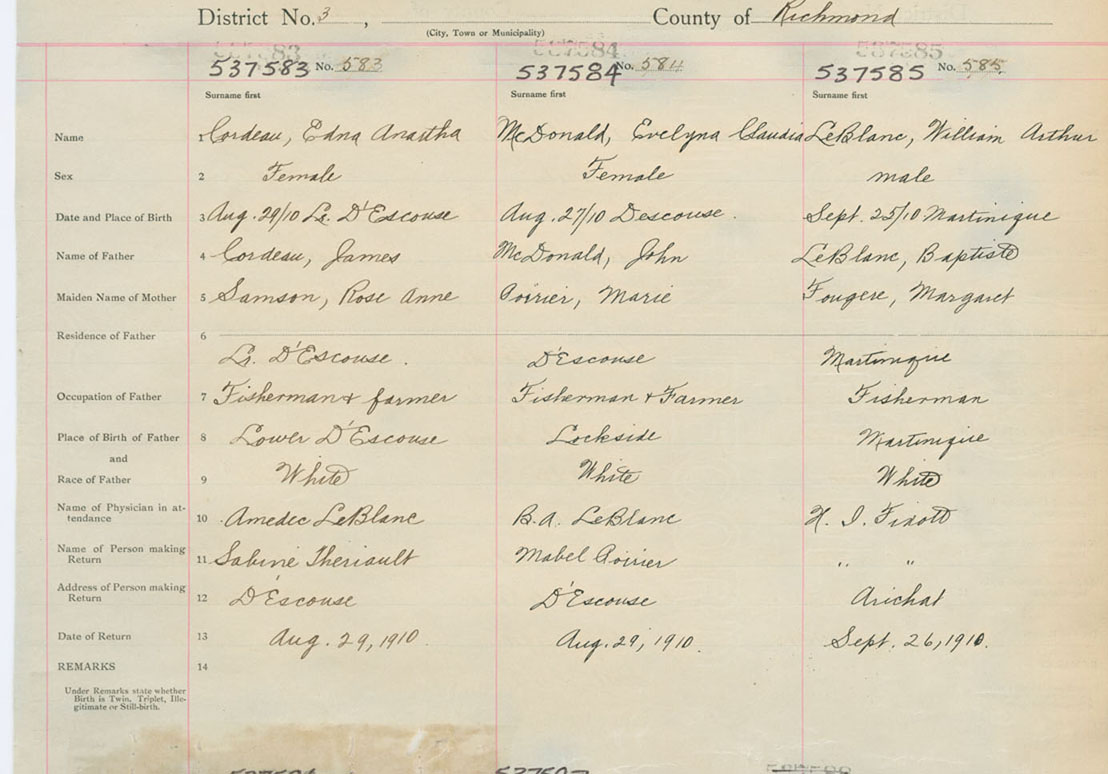 District No. 3, County of Richmond
(City, Town or Municipality)
537583 537584 537585
537583 No. 583 537584 No. 584 537585 No. 585
Surname first Surname first Surname first
Name 1 Cordeau, Edna Anastha McDonald, Evelyna Claudia LeBlanc, William Arthur
Sex 2 Female Female male
Date and Place of Birth 3 Aug. 29/10 Lr. D'Escouse Aug. 27/10 Descouse. Sept. 25/10 Martinique
Name of Father 4 Cordeau, James McDonald, John LeBlanc, Baptiste
Maiden Name of Mother 5 Samson, Rose Anne Poirier, Marie Fougere, Margaret
Residence of Father 6
Lr. D'Escouse. D'Escouse Martinique
Occupation of Father 7 Fisherman + farmer Fisherman + Farmer Fisherman
Place of Birth of Father 8 Lower D'Escouse Lockside Martinique
and
Race of Father 9 White White White
Name of Physician in at-
tendance 10 Amedec LeBlanc B.A. LeBlanc H. I.
Name of Person making
Return 11 Sabine Theriault Mabel Poirier " "
Address of Person making
Return 12 D'Escouse D'Escouse Arichat
Date of Return 13 Aug. 29, 1910. Aug. 29, 1910. Sept. 26, 1910.
REMARKS 14
Under Remarks state whether
Birth is Twin, Triplet, Ille-
gitimate or Still-birth.